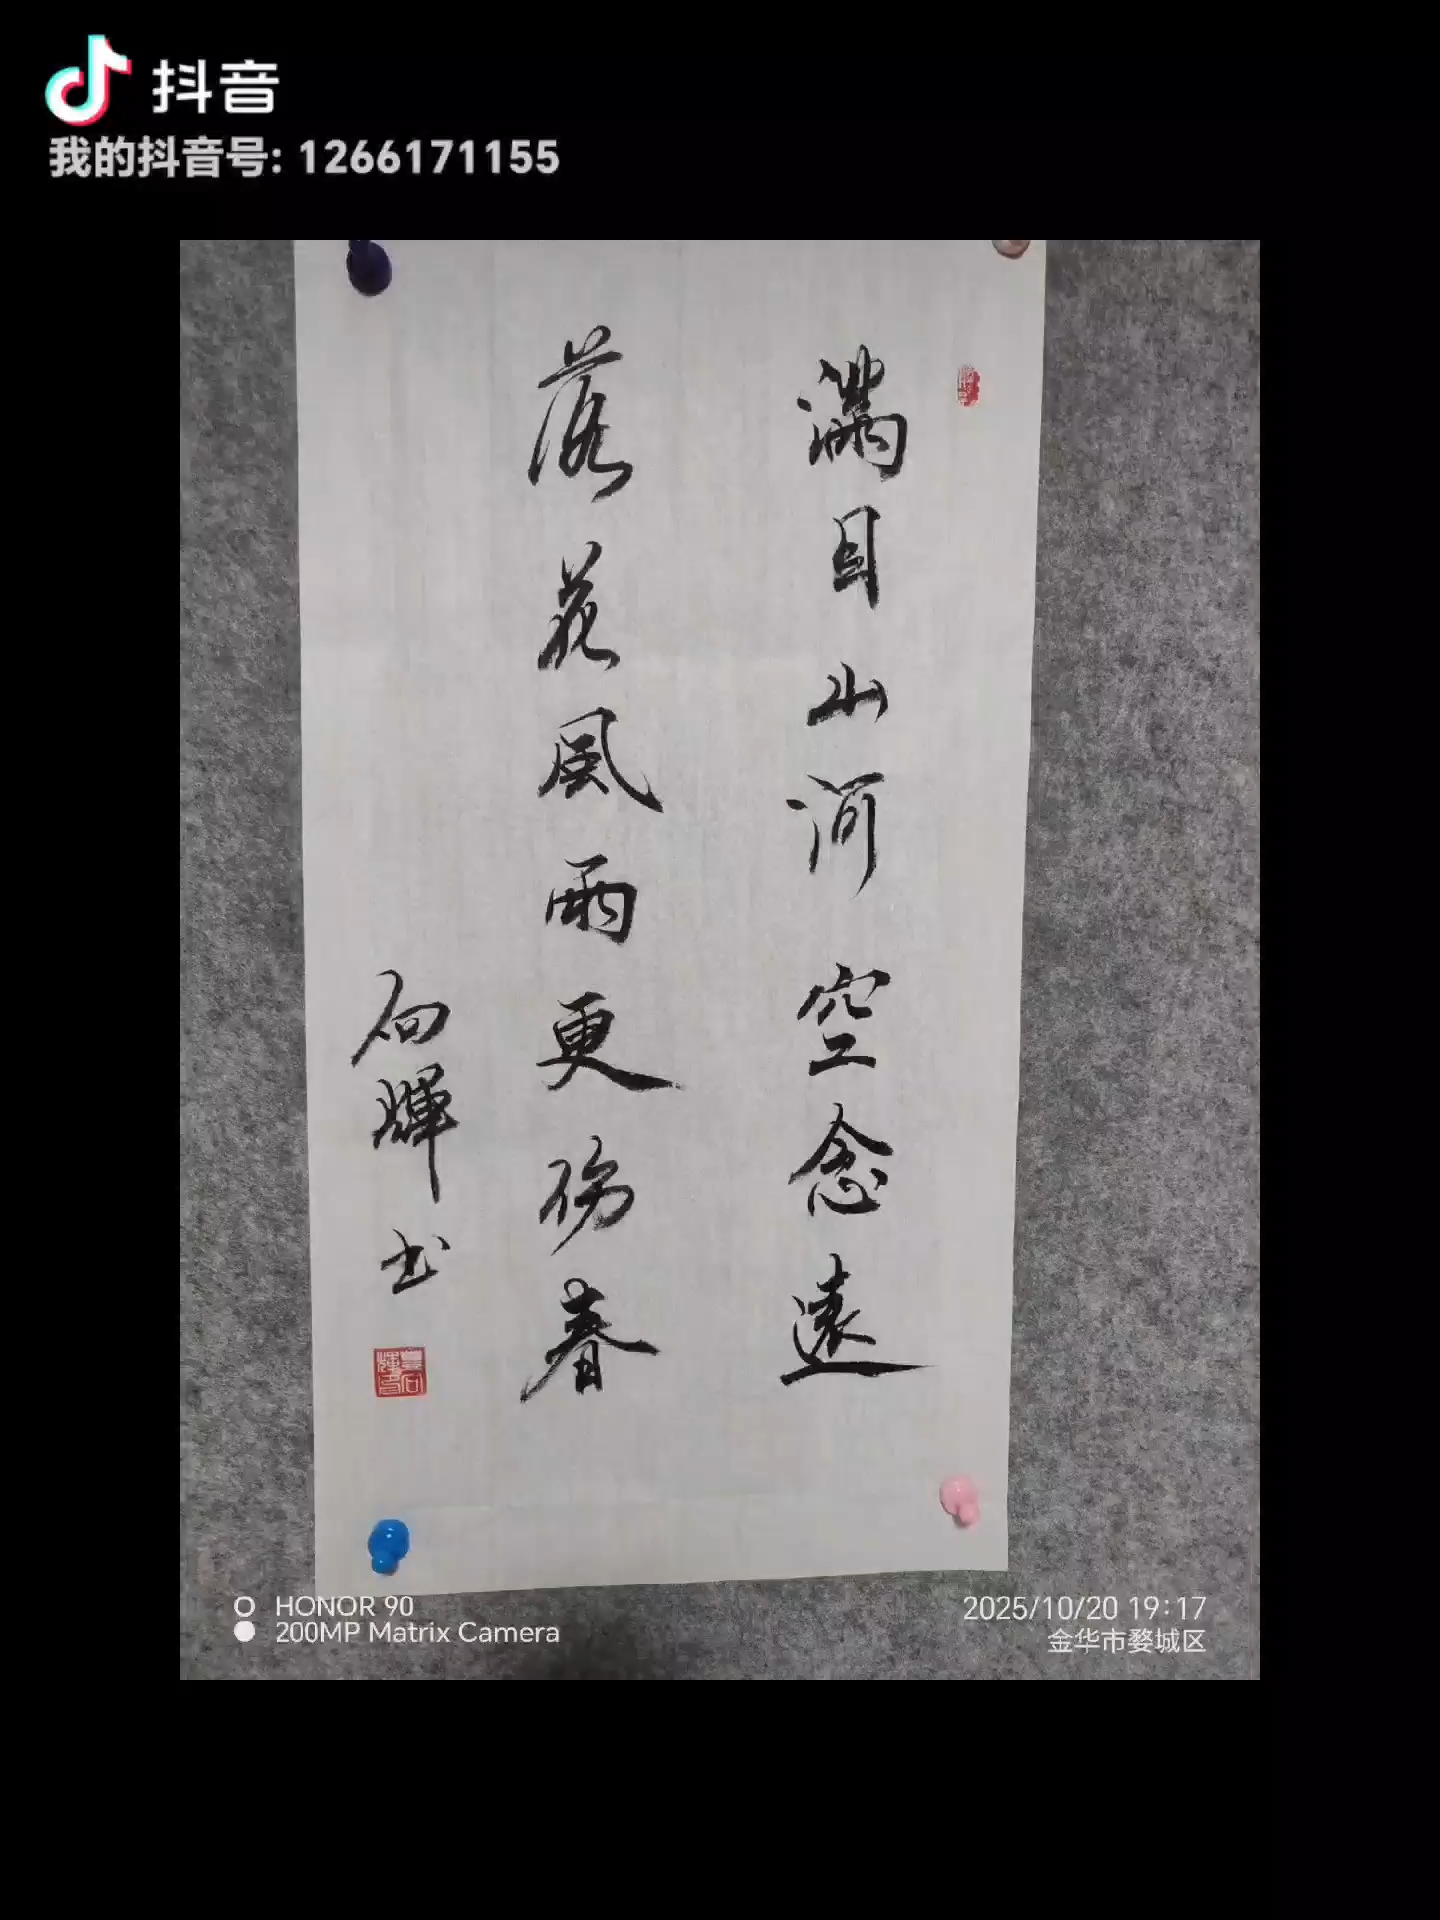 抖音
我的抖音号: 1266171155
滿目山河空念遠
落花風雨更傷春
向輝书
HONOR 90
200MP Matrix Camera
2025/10/20 19:17
金华市婺城区